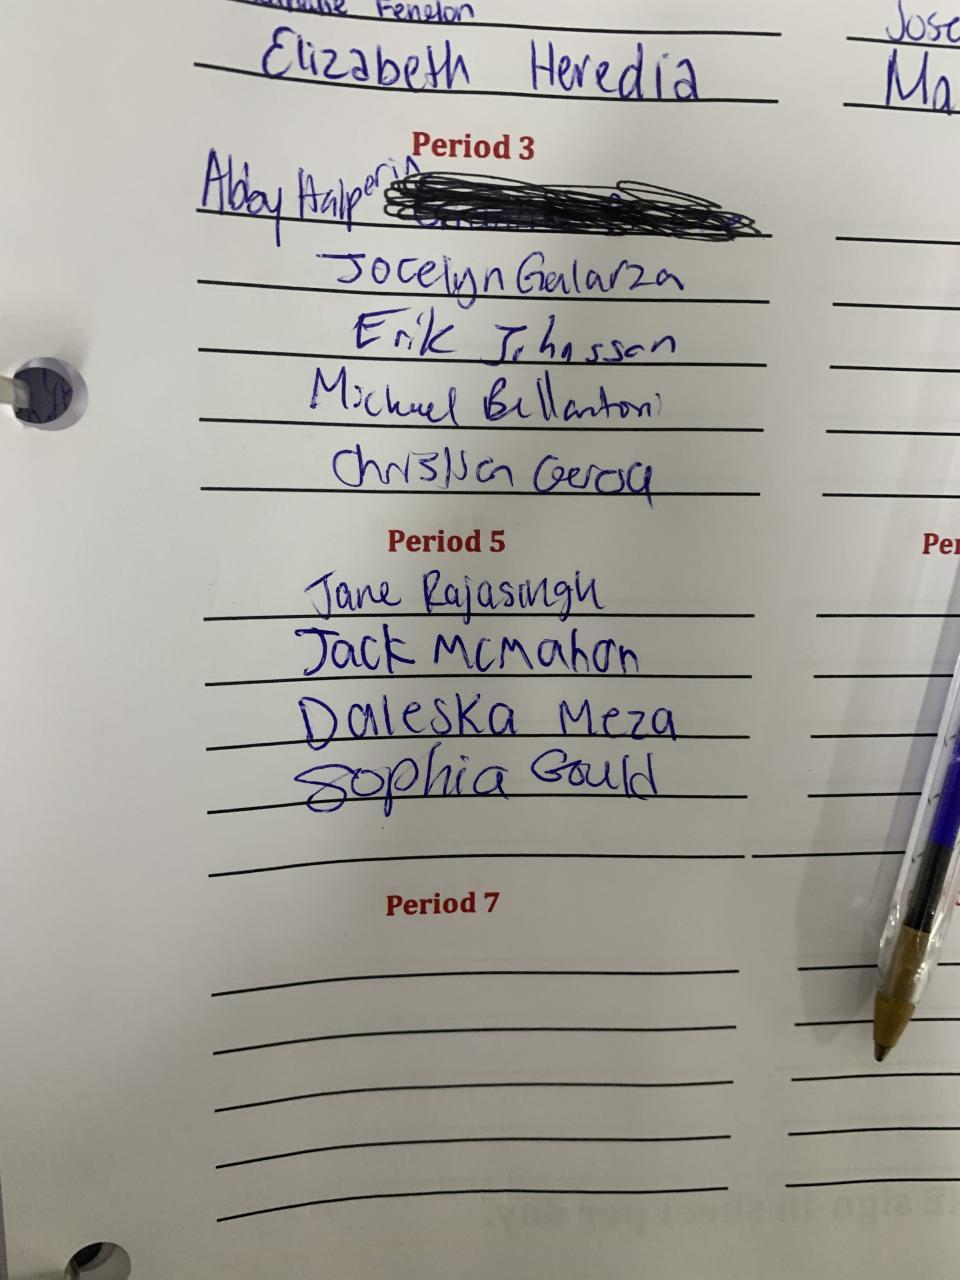 Fenelon
Josc
Elizabeth Heredia
Ma
Period 3
Abby Halperin
Jocelyn Galarza
Erik Johnsson
Michael Bellantoni
Christian Geroa
Period 5
Per
Jane Rajasingh
Jack McMahon
Daleska Meza
Sophia Gould
Period 7
E sign-in sheet per day.